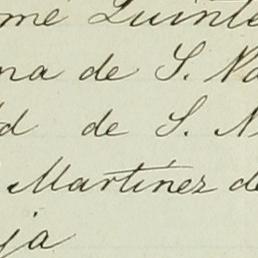 Quinte
na de S. Na
d de S. N
Martínez de
ja